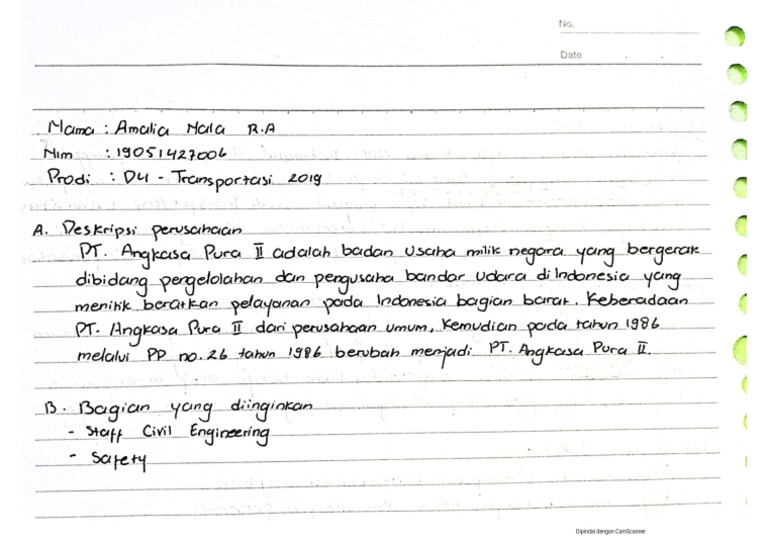 No.
Date
Nama : Amalia Nala R.A
Nim : 19051427006
Prodi : D4 - Transportasi 2019
A. Deskripsi perusahaan
PT. Angkasa Pura II adalah badan usaha milik negara yang bergerak
dibidang pengelolahan dan pengusaha bandar udara di Indonesia yang
menitik beratkan pelayanan pada Indonesia bagian barat. Keberadaan
PT. Angkasa Pura II dari perusahaan umum, Kemudian pada tahun 1986
melalui PP no. 26 tahun 1986 berubah menjadi PT. Angkasa Pura II.
B. Bagian yang diinginkan
- Staff Civil Engineering
- Safety
Dipindai dengan CamScanner